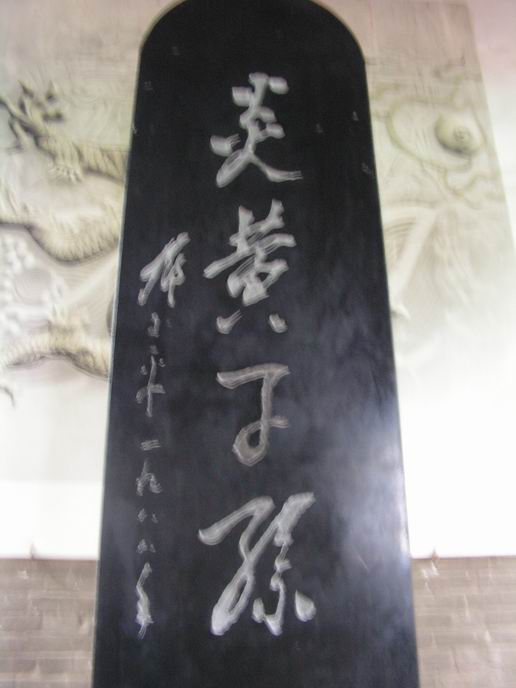 炎黄子孙
一九八八年